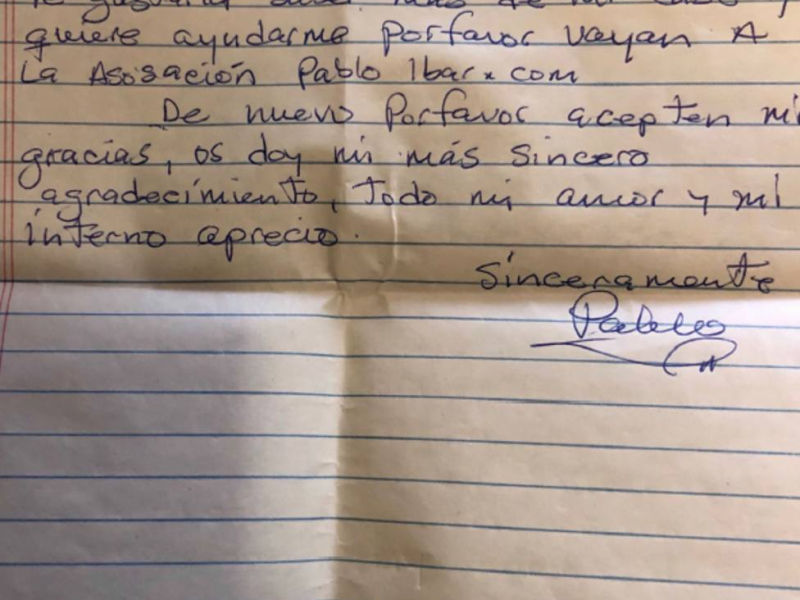 le gustaria saber más de mi caso y
quiere ayudarme Porfavor vayan A
La Asosación Pablo Ibar.com
De nuevo Porfavor acepten mis
gracias, os doy mi más sincero
agradecimiento, todo mi amor y mi
interno aprecio.
Sinceramente
Pablo